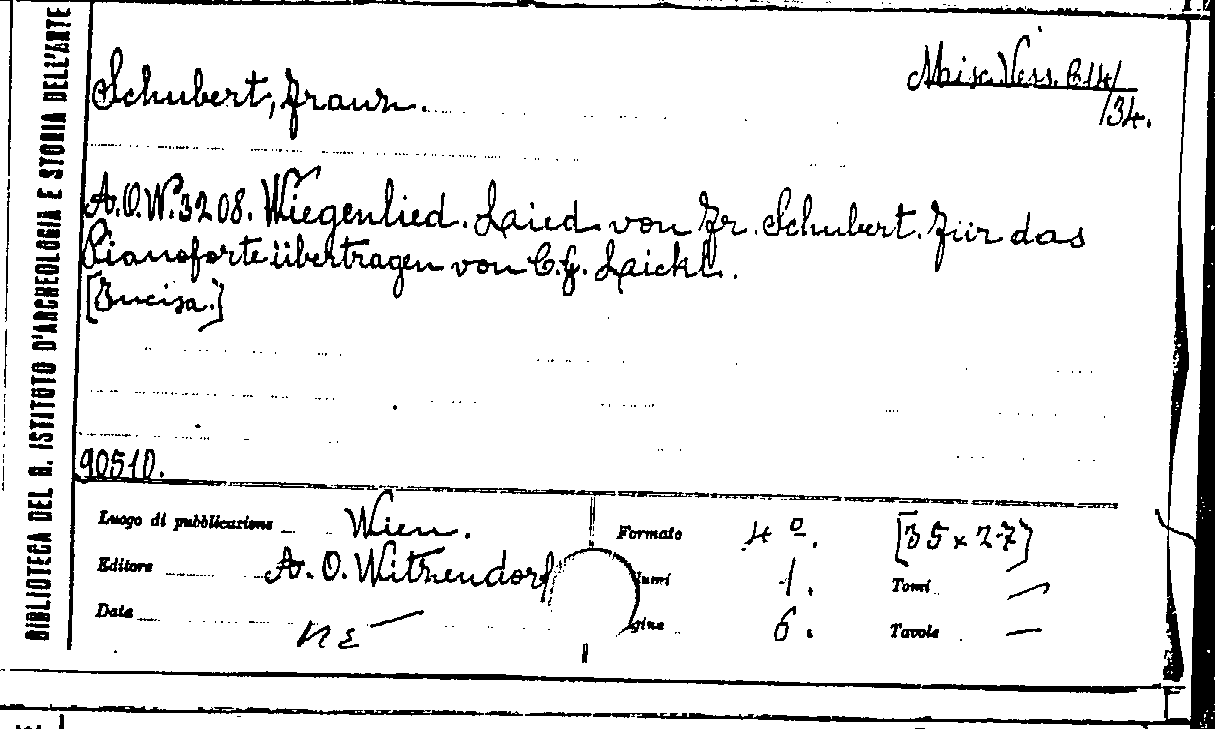 BIBLIOTECA DEL R. ISTITUTO D'ARCHEOLOGIA E STORIA DELL'ARTE
Schubert, Franz.
Misc. Vess. C 14/
/34.
A.O.W. 3208. Wiegenlied. Laied von Fr. Schubert. Für das
Pianoforte übertragen von C.G. Laickl.
[Incisa.]
90510.
Luogo di pubblicazione Wien.
Editore A. O. Witzendorf
Data
Formato 4º. [35 x 27]
lumi 1. Tomi —
gine 6. Tavole —